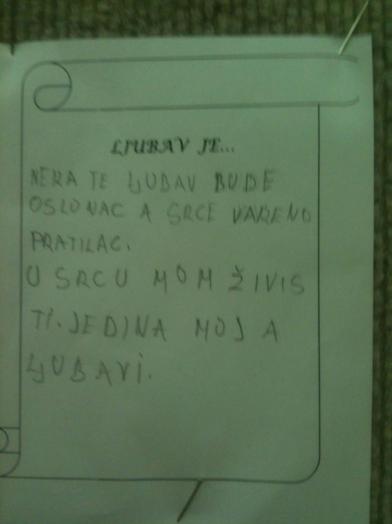 LJUBAV JE...
NEKA TE LJUBAV BUDE
OSLONAC A SRCE VARENO
PRATILAC.
U SRCU MOM ŽIVIS
TI. JEDINA MOJA
LJUBAVI.